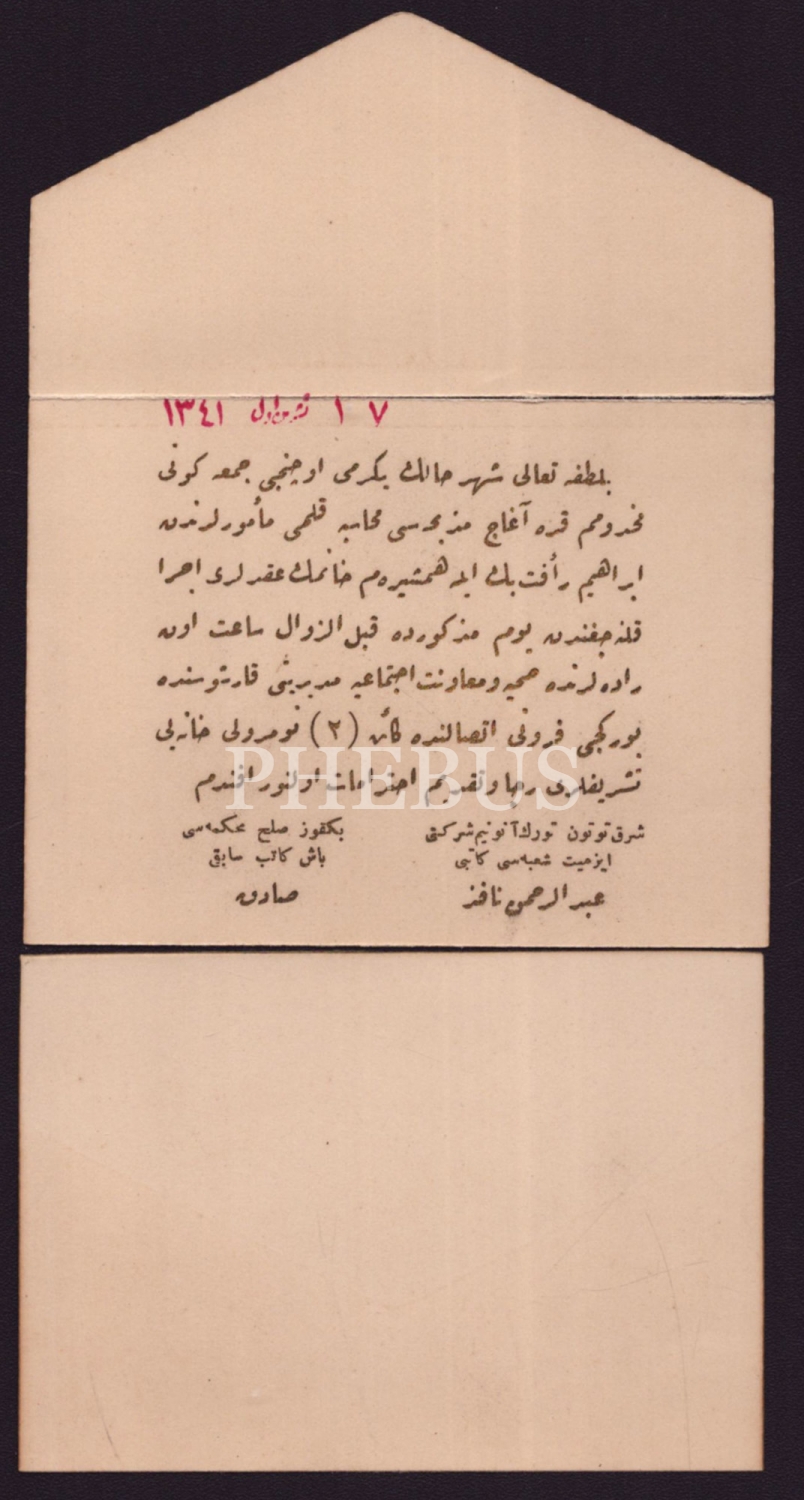 ١٧ تشرين اول ١٣٤١
بلطفه تعالى شهر حالك يكرمى اوچنجى جمعه كونى
مخدومم قره آغاج مذبحه‌سى محاسبه قلمى مأمورلرندن
ابراهيم رأفت بك ايله همشيره‌م خانمك عقدلرى اجرا
قلنه‌جغندن يوم مذكورده قبل الزوال ساعت اون
راده‌لرنده صحيه و معاونت اجتماعيه مديريتى قارشوسنده
بوركجى فرونى اتصالنده كائن (٢) نومرولى خانه‌يى
تشريفلرى رجا و تقديم احترامات اولنور افندم
PHEBUS
شرق توتون تورك آنونيم شركتى
ازميت شعبه‌سى كاتبى
عبدالرحمن نافذ
بكقوز صلح محكمه‌سى
باش كاتب سابقى
صادق